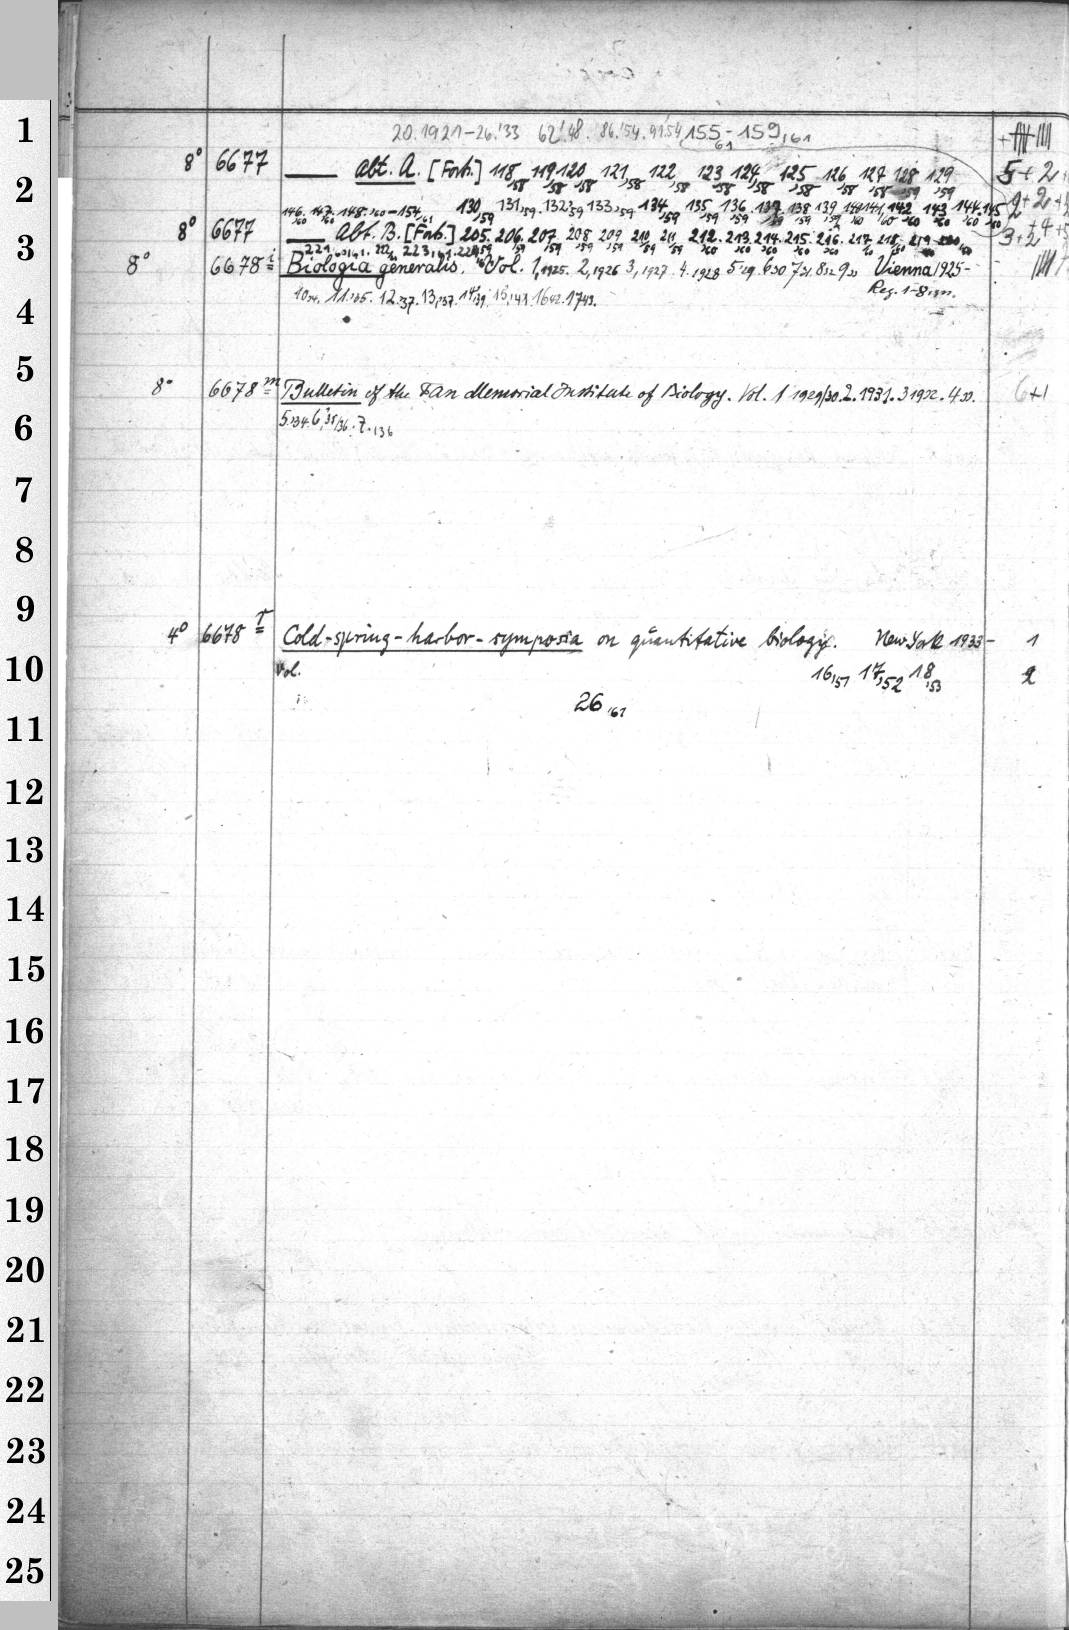 1
20.1921-26.'33 62'.48. 86.'54. 91.54 155-159,61
61
8° 6677 —— Abt. A. [Forts.] 118,58 119,58 120,58 121,58 122,58 123,58 124,58 125,58 126,58 127,58 128,59 129,59 5+2
2
146.'60 147.'60 148.'60-154,'61 130,59 131,59. 132,59 133,59 134,59 135,59 136,59 137,59 138,59 139,59 140 141,'60 142,'60 143,'60 144.'60 145,'60 2+2
8° 6677 —— Abt. B. [Forts.] 205. 206. 207,59 208,59 209,59 210,59 211,59 212.'60 213.'60 214.'60 215.'60 216.'60 217 218 219 3+2
3
221 223
8° 6678 i Biologia generalis. Vol. 1,1925. 2,1926 3,1927. 4.1928 5'29. 6'30 7'31 8'32 9'33 Vienna 1925-
Reg. 1-8
10'34. 11.'35. 12.'37. 13,'37. 14'39. 15,'41 16'42. 17'43.
4
5
8° 6678 m Bulletin of the Fan Memorial Institute of Biology. Vol. 1 1929/30. 2.1931. 3 1932. 4'33. 6+1
5.'34. 6,'35/36. 7.'36
6
7
8
9
4° 6678 r Cold-spring-harbor-symposia on quantitative biology. New York 1933- 1
10
Vol. 16,51 17,52 18,53 2
26,'61
11
12
13
14
15
16
17
18
19
20
21
22
23
24
25